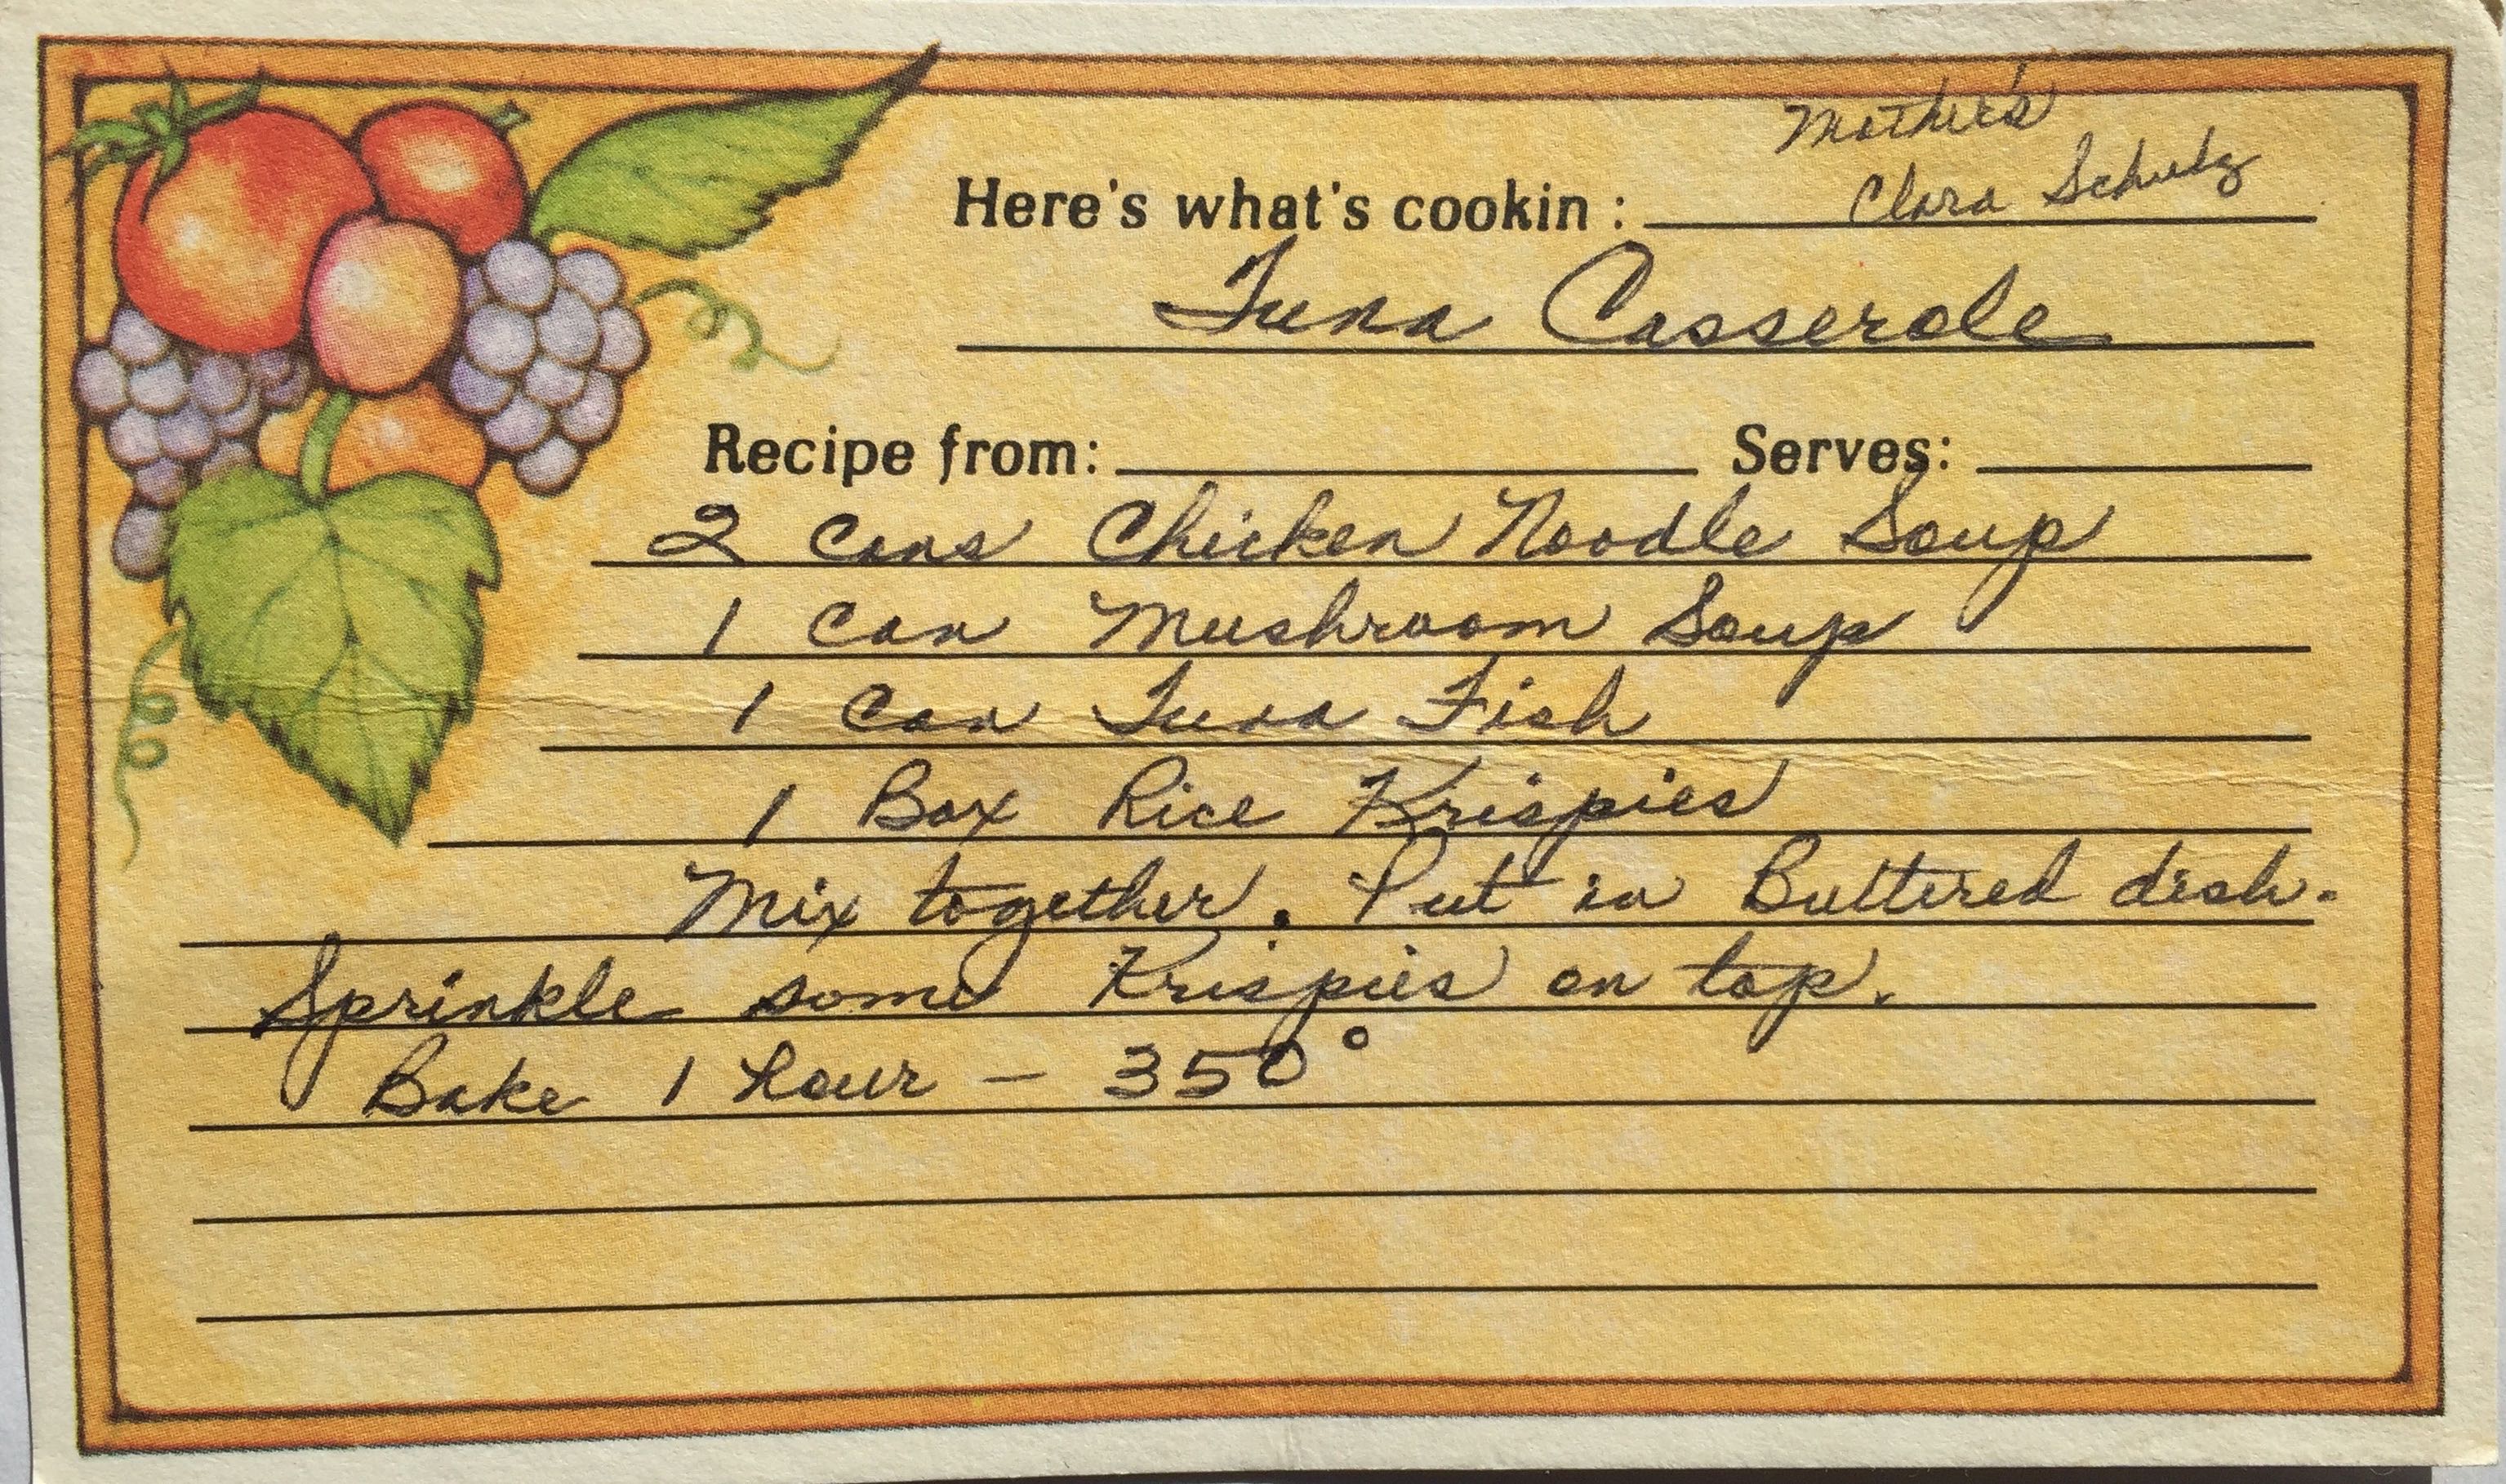 Mother's
Clara Schulz
Here's what's cookin :
Tuna Casserole
Recipe from: Serves:
2 Cans Chicken Noodle Soup
1 Can Mushroom Soup
1 Can Tuna Fish
1 Box Rice Krispies
Mix together. Put in Buttered dish.
Sprinkle some Krispies on top.
Bake 1 hour – 350°